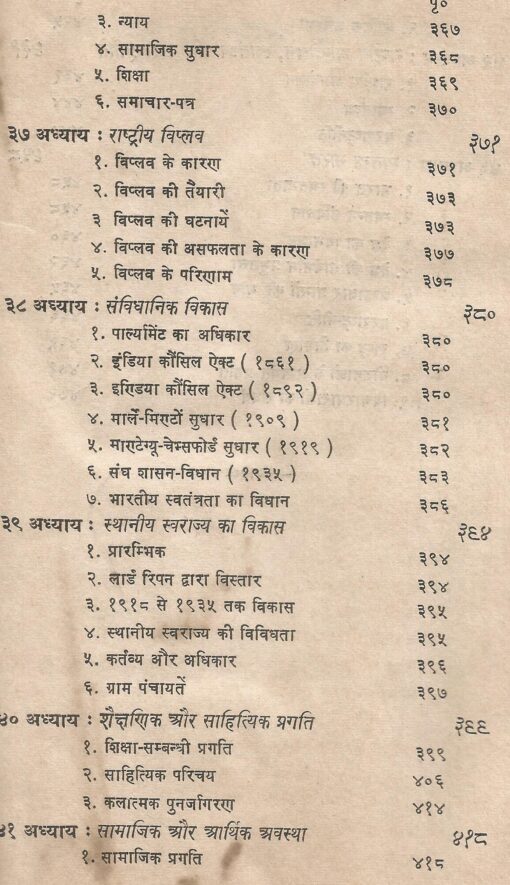 पृ०
३. न्याय ३६७
४. सामाजिक सुधार ३६८
५. शिक्षा ३६९
६. समाचार-पत्र ३७०
३७ अध्याय : राष्ट्रीय विप्लव ३७१
१. विप्लव के कारण ३७१
२. विप्लव की तैयारी ३७३
३ विप्लव की घटनायें ३७३
४. विप्लव की असफलता के कारण ३७७
५. विप्लव के परिणाम ३७८
३८ अध्याय : संविधानिक विकास ३८०
१. पार्ल्यामेंट का अधिकार ३८०
२. इंडिया कौंसिल ऐक्ट ( १८६१ ) ३८०
३. इण्डिया कौंसिल ऐक्ट ( १८९२ ) ३८०
४. मार्ले-मिण्टों सुधार ( १९०९ ) ३८१
५. माण्टेग्यू-चेम्सफोर्ड सुधार ( १९१९ ) ३८२
६. संघ शासन-विधान ( १९३५ ) ३८३
७. भारतीय स्वतंत्रता का विधान ३८६
३९ अध्याय : स्थानीय स्वराज्य का विकास ३९४
१. प्रारम्भिक ३९४
२. लार्ड रिपन द्वारा विस्तार ३९४
३. १९१८ से १९३५ तक विकास ३९५
४. स्थानीय स्वराज्य की विविधता ३९५
५. कर्तव्य और अधिकार ३९६
६. ग्राम पंचायतें ३९७
४० अध्याय : शैक्षणिक और साहित्यिक प्रगति ३९९
१. शिक्षा-सम्बन्धी प्रगति ३९९
२. साहित्यिक परिचय ४०६
३. कलात्मक पुनर्जागरण ४१४
४१ अध्याय : सामाजिक और आर्थिक अवस्था ४१८
१. सामाजिक प्रगति ४१८